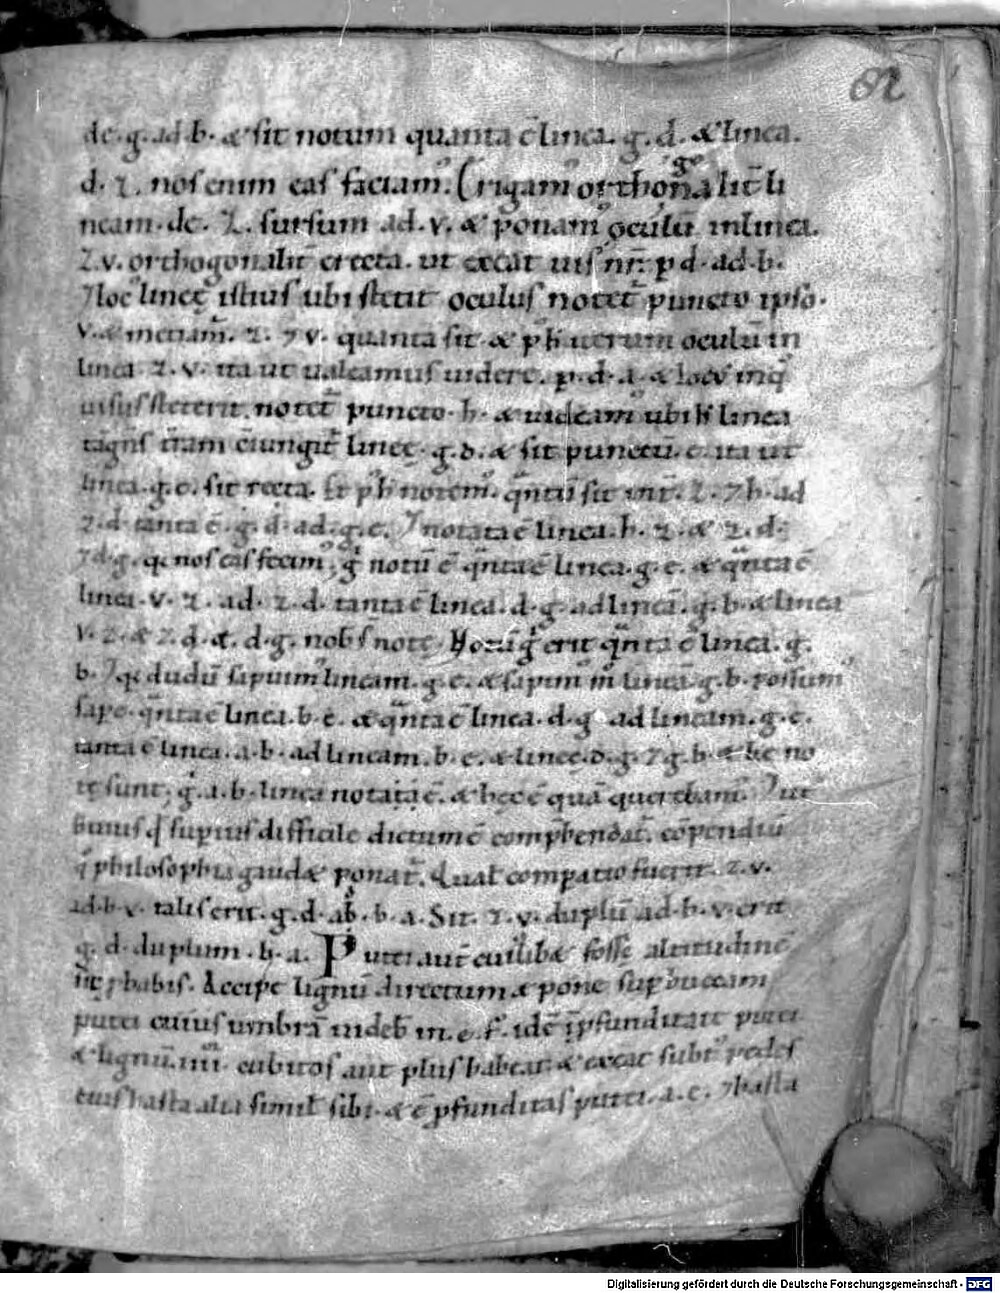 82
de. g. ad. b. & sit notum quanta ē linea. g. d. & linea.
d. z. nos enim eas faciam᾿. Erigam᾿ orthogonalit̄ li
neam. de. z. sursum ad. v. & ponam᾿ oculū in linea.
z. v. orthogonalit̄ erecta. ut exeat uis᾿ nr̄ p d. ad. b.
7 loc᾿ lineę istius ubi stetit oculus notet᾿ puncto ipso.
v. & metiam᾿. z. 7 v. quanta sit. & p᾿ h iterum oculū in
linea. z. v. ita ut ualeamus uidere. p. d. a. & loc᾿ in q᾿
uisus steterit. notet᾿ puncto. h. & uideam᾿ ubi linea
tāgn̄s t̄ram cōiungit᾿ lineę. g. d. & sit punctū. e. ita ut
linea. g. e. sit recta. Et p᾿ h notem᾿. q̄ntū sit int᾿. z. 7 h. ad
z. d. tanta ē. g. d. ad. g. e. 7 notata ē linea. h. z. & z. d.
7 d. g. q. nos eas fecim᾿, g᾿ notū ē q̄nta ē linea. g. e. & q̄nta ē
linea. v. z. ad. z. d. tanta ē linea. d. g. ad lineā. g. b. & linea
v. z. & z. d. &. d. g. nob᾿ s̄ note. erit q̄nta ē linea. g.
b. 7 q. dudū lineam. g. e. & lineā. g. b. possum᾿
q̄nta ē linea. b. e. & q̄nta ē linea. d. g ad lineam. g. e.
tanta ē linea. a. b. ad lineam. b. e. & lineę. d. g. 7 g. b. & he no
tę sunt, g᾿. a. b. linea notata ē. & hęc ē quā querebam᾿. 7 ut
huius q᾿ supius difficile dictum ē comp̄hendat᾿. cōpendiū
q᾿ philosophia gaud& ponat᾿. Qual᾿ compatio fuerit. z. v.
ad. h. v. talis erit. g. d. ad. b. a. Sit. z. v. duplū ad. h. v. erit
g. d. duplum. b. a. Putei aut᾿ cuilib& fosse altitudinē
sic p̄babis. Accipe lignū directum & pone sup buccam
putei cuius umbrā uideb᾿ in. e. f. idē in p̄funditate putei
& lignū. iiii. cubitos aut plus habeat & exeat subt᾿ pedes
eius hasta alia simil᾿ sibi. & ē p̄funditas putei. a. c. 7 hasta
Digitalisierung gefördert durch die Deutsche Forschungsgemeinschaft - DFG